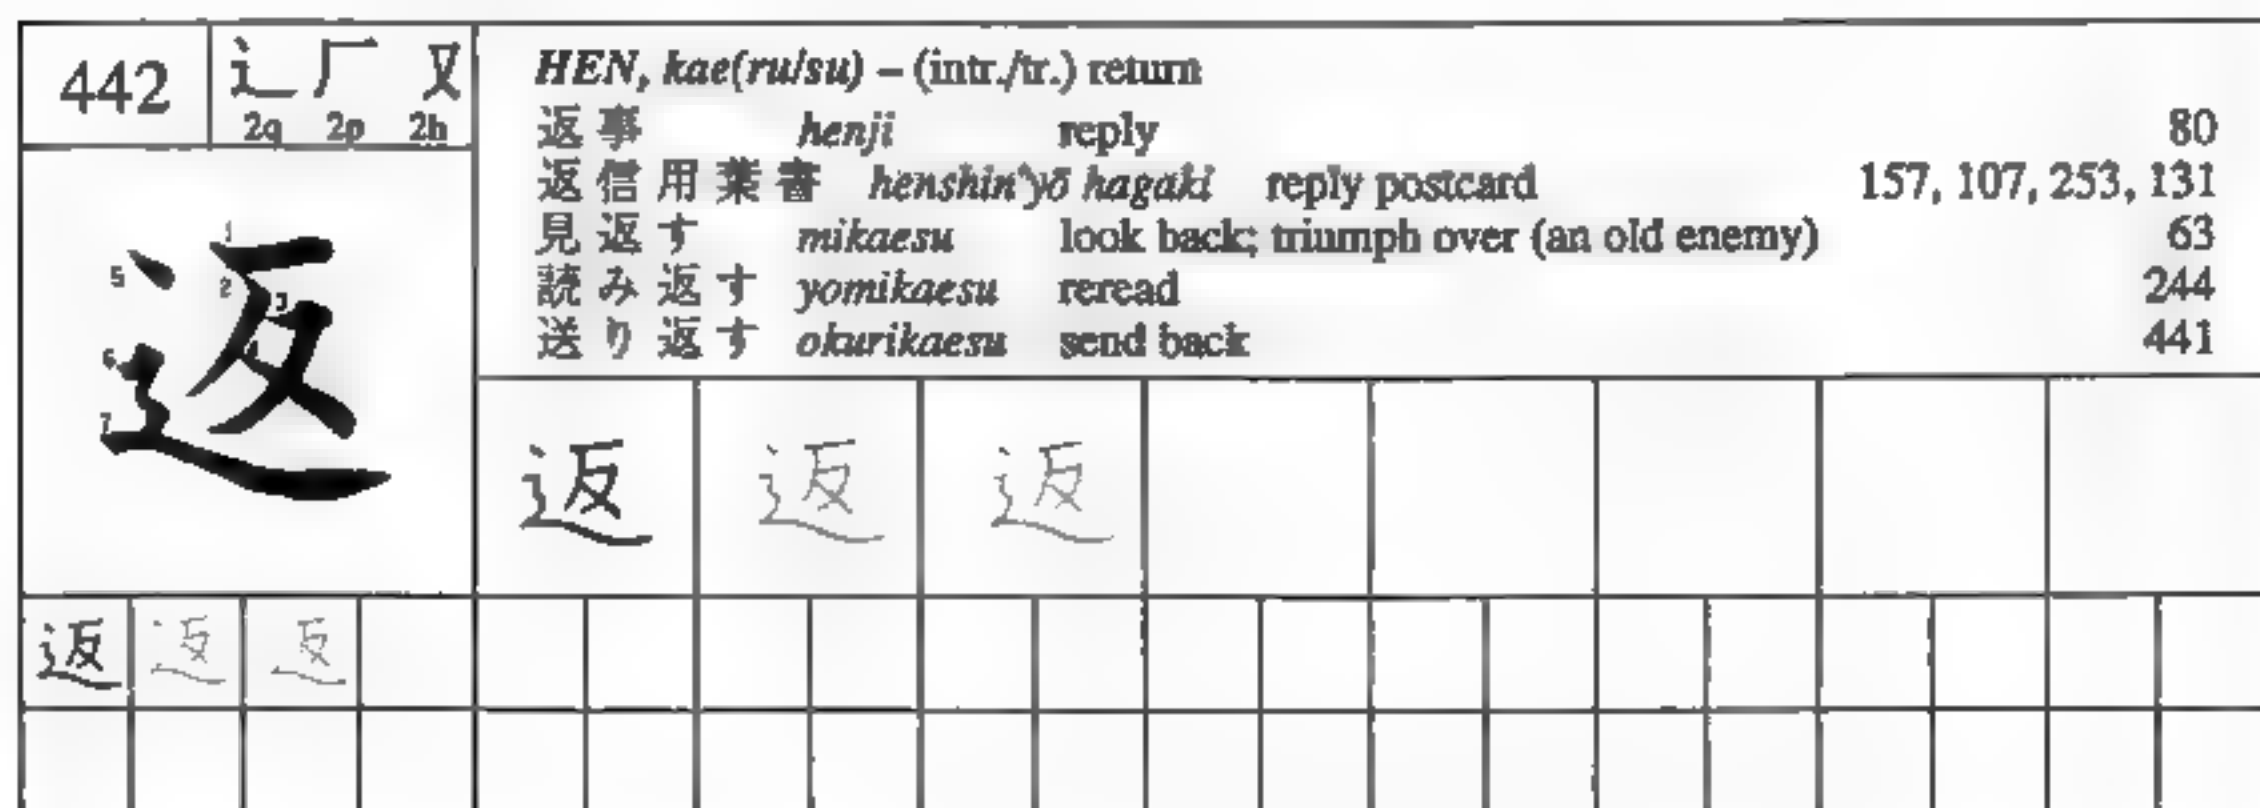 442
辶 厂 又
2q 2p 2h
HEN, kae(ru/su) – (intr./tr.) return
返事 henji reply 80
返信用葉書 henshin'yō hagaki reply postcard 157, 107, 253, 131
見返す mikaesu look back; triumph over (an old enemy) 63
読み返す yomikaesu reread 244
送り返す okurikaesu send back 441
1
5 返 2 3
6 4
7
返 返 返
返 返 返